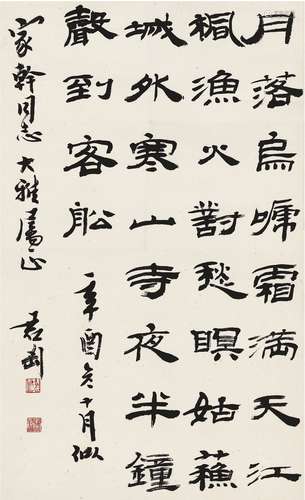 月落烏嗁霜滿天江
楓漁火對愁瞑姑蘓
城外寒山寺夜半鐘
聲到客舩
辛酉冬十月似
家幹同志大雅屬正
君匋